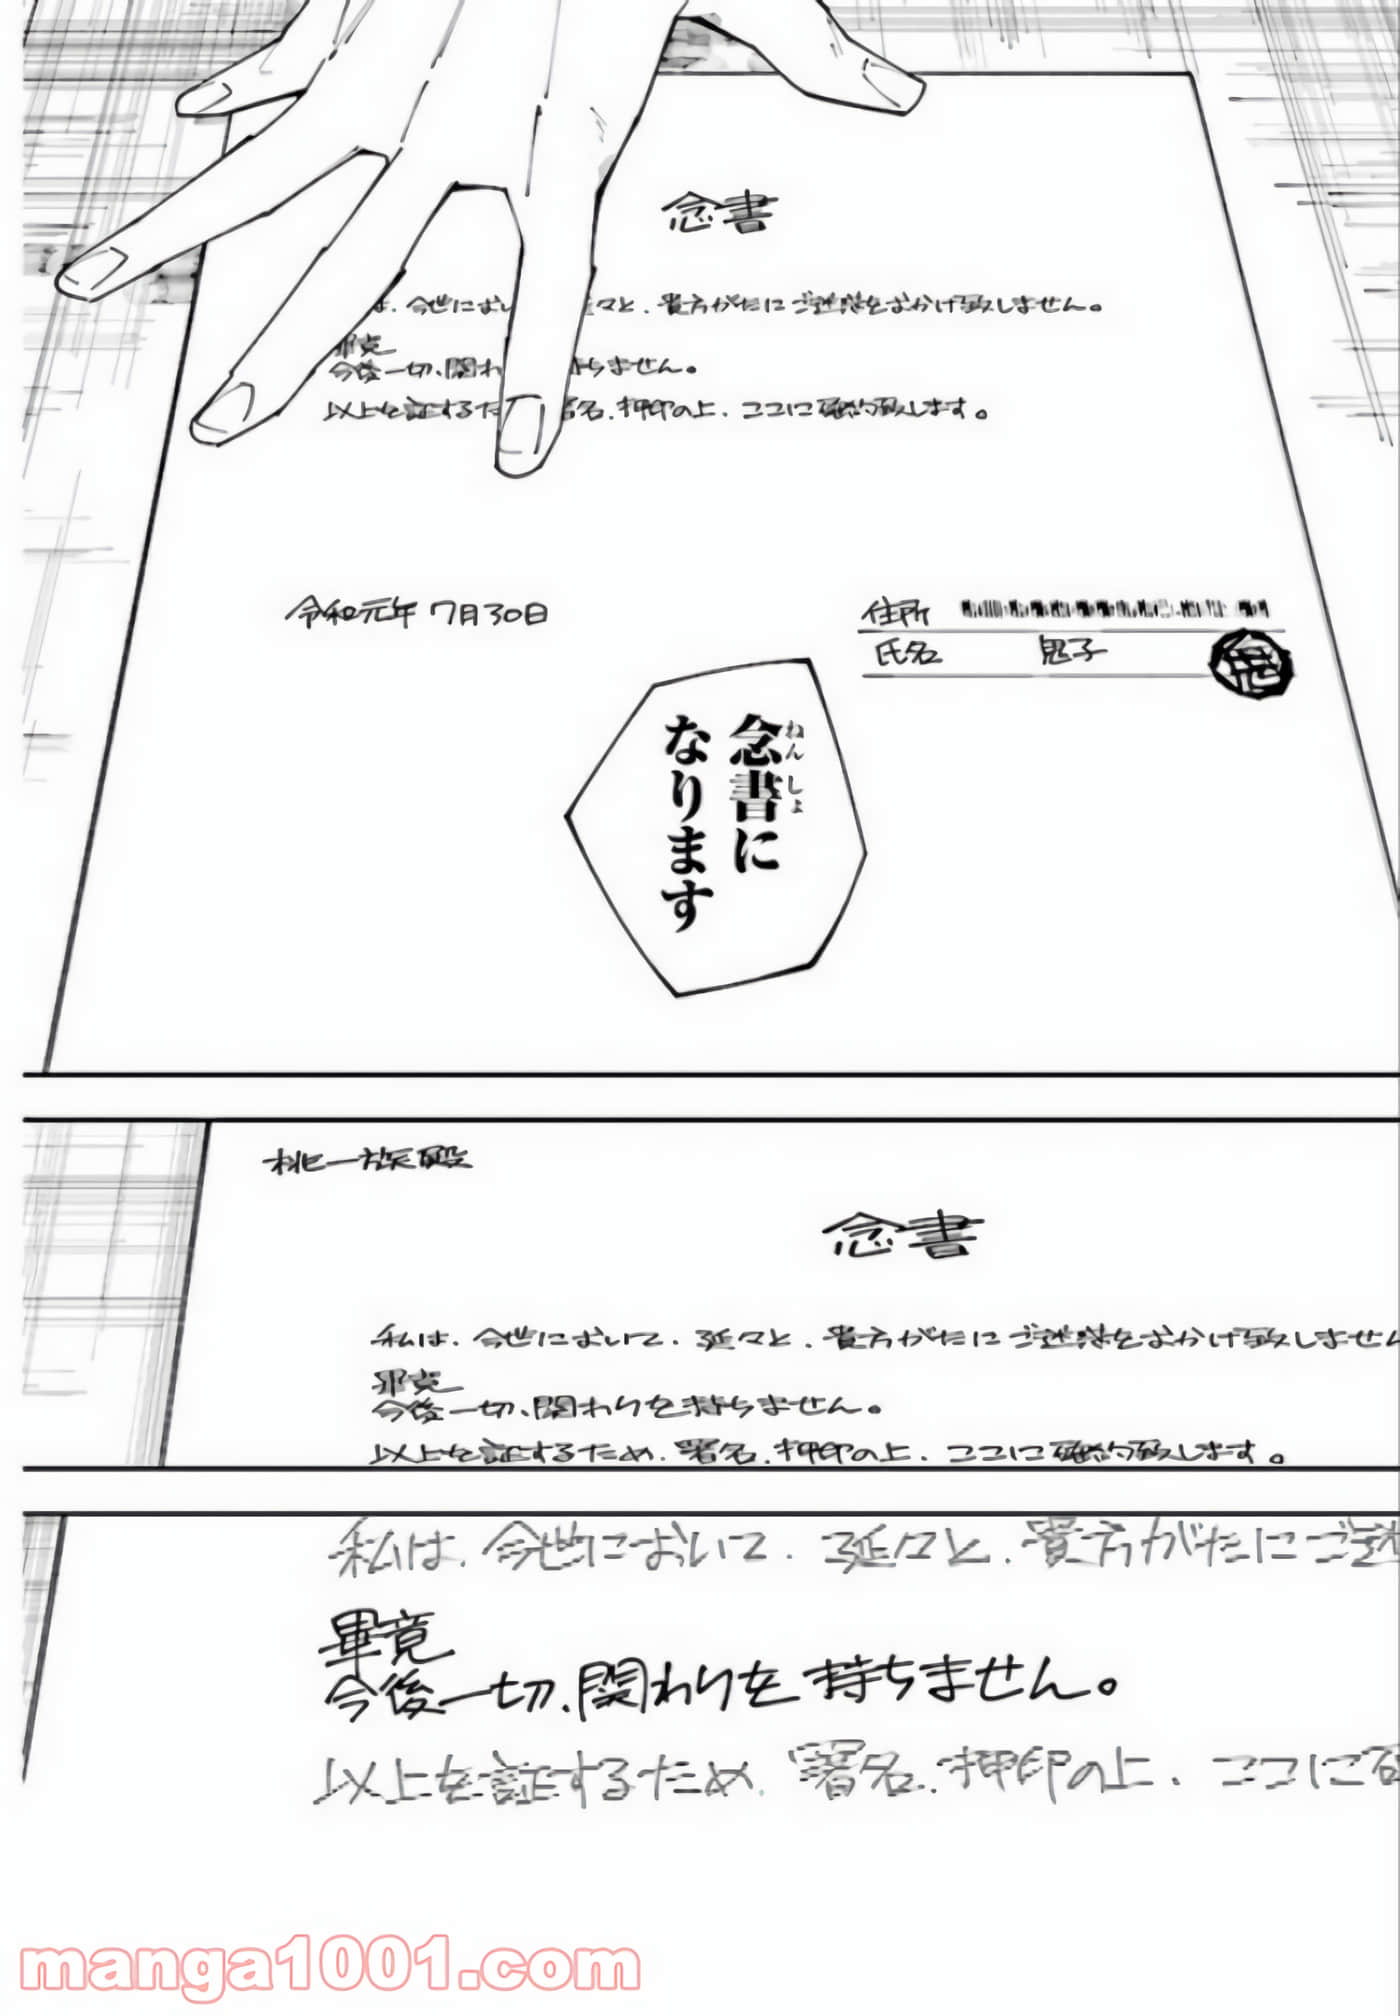 念書
は、今世におい 々と、貴方がたにご迷惑をおかけ致しません。
畢竟
今後一切、関わ 持ちません。
以上を証するた 署名、押印の上、ココに確約致します。
令和元年 7月30日
住所
氏名 鬼子
鬼
念書に
なります
ねんしょ
桃一族殿
念書
私は、今世において、延々と、貴方がたにご迷惑をおかけ致しません
畢竟
今後一切、関わりを持ちません。
以上を証するため、署名、押印の上、ココに確約致します。
私は、今世において、延々と、貴方がたにご迷
畢竟
今後一切、関わりを持ちません。
以上を証するため、署名、押印の上、ココに確
manga1001.com